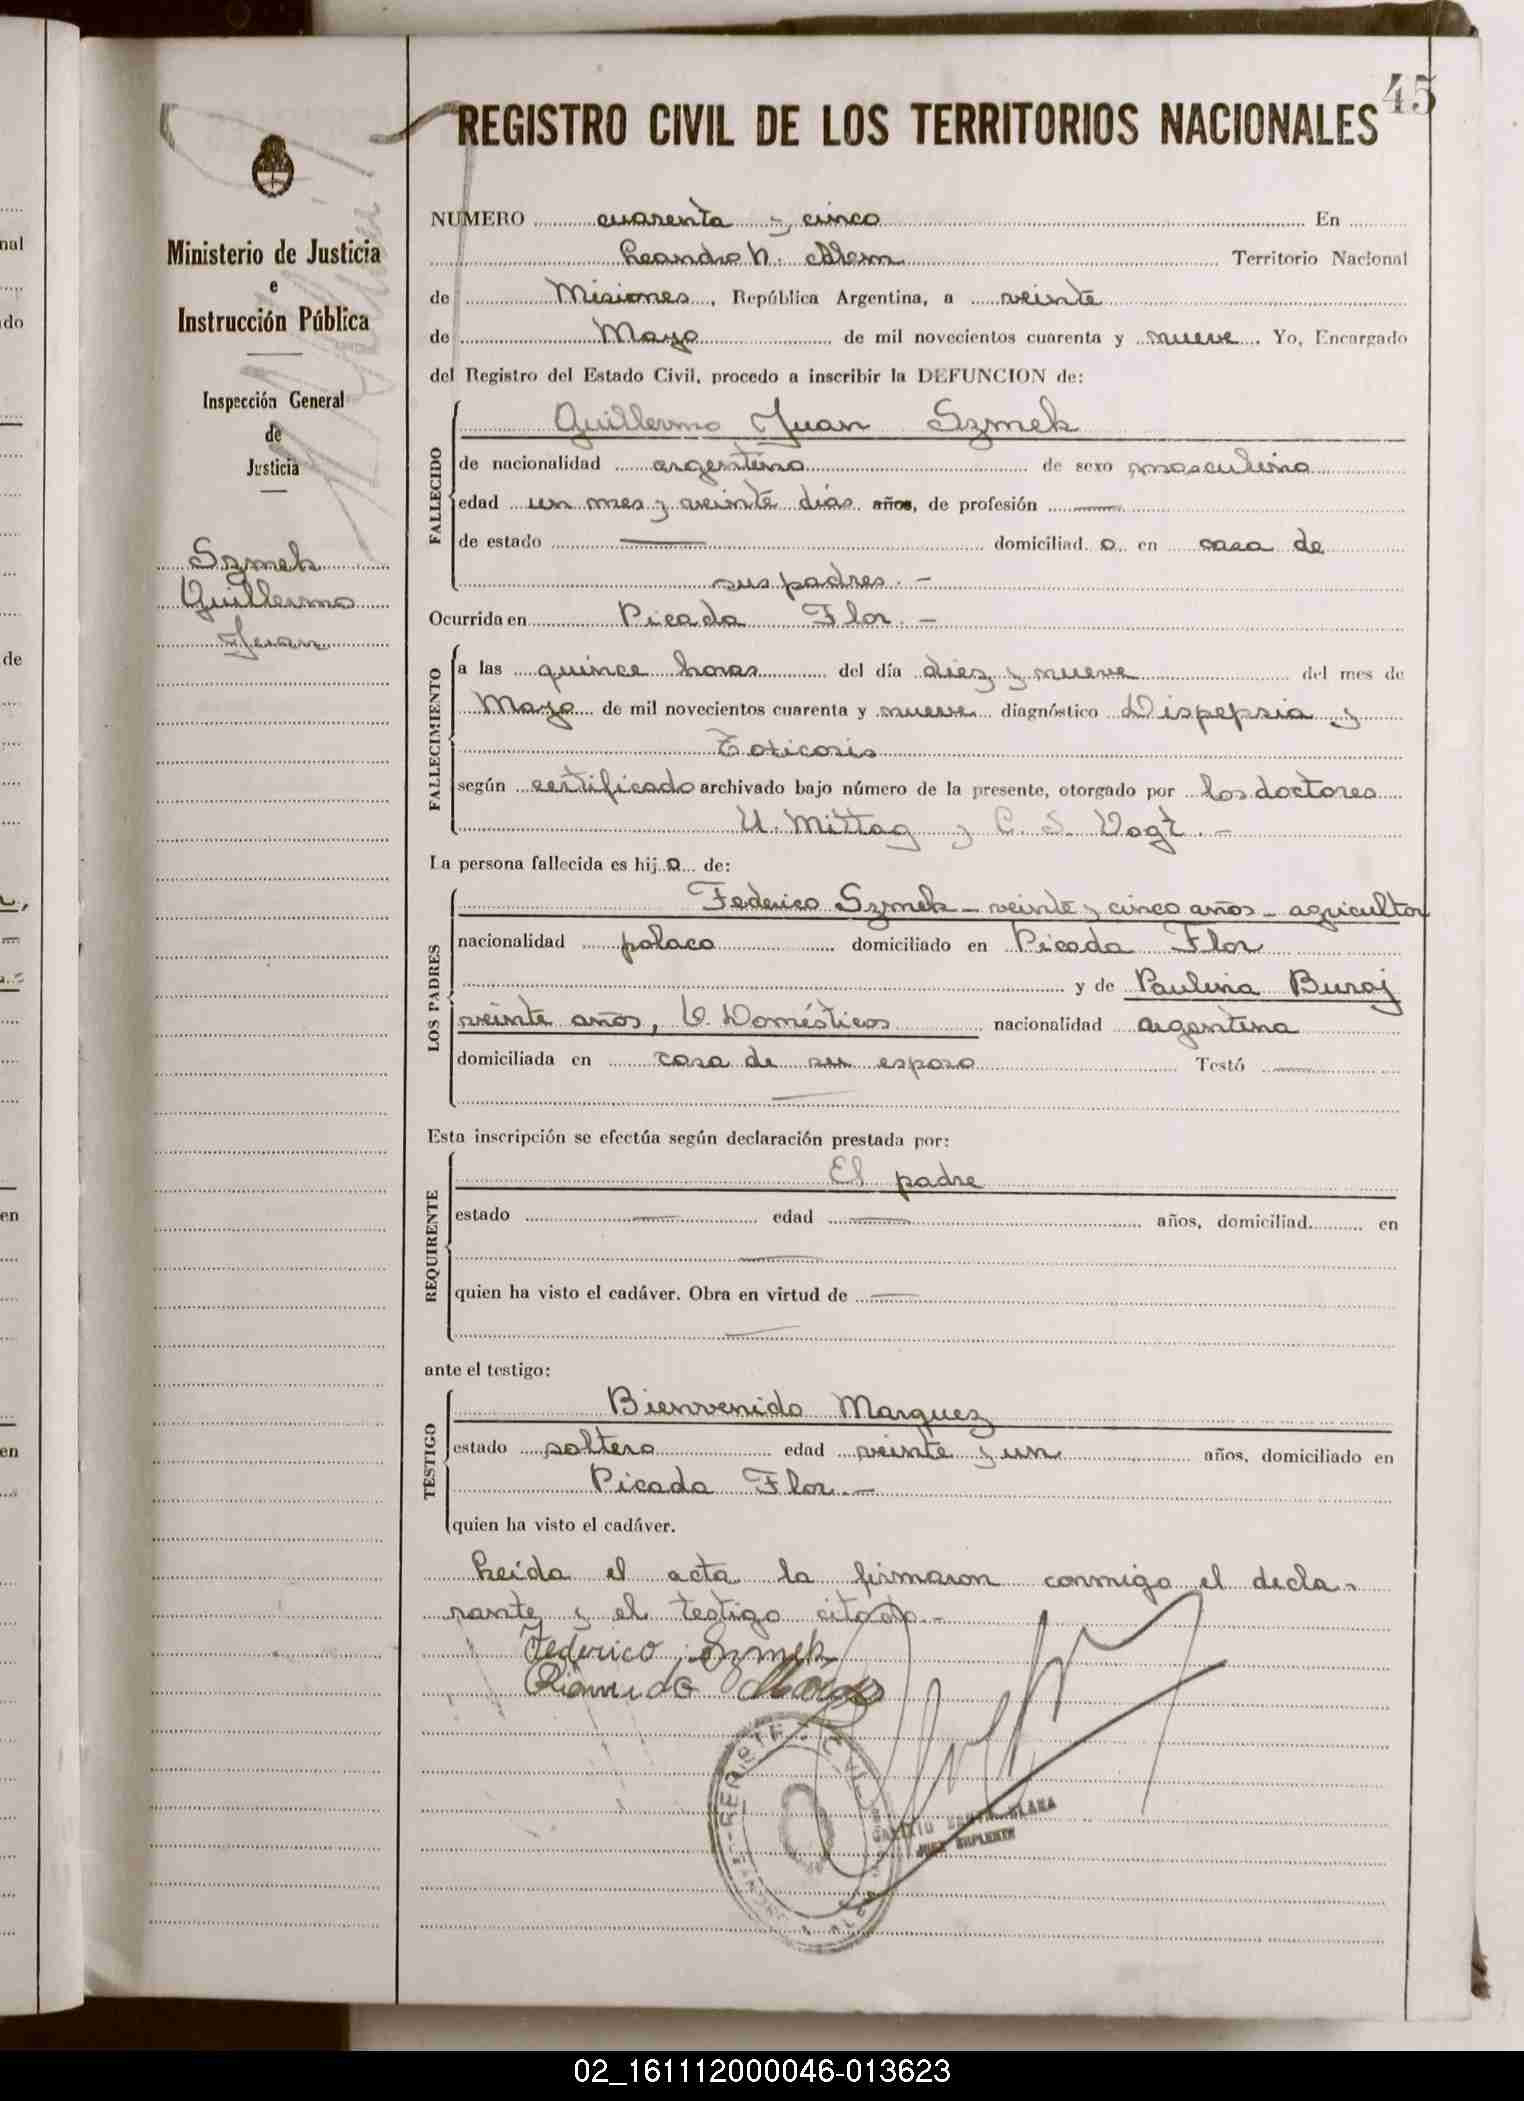 45
REGISTRO CIVIL DE LOS TERRITORIOS NACIONALES
Ministerio de Justicia
e
Instrucción Pública
Inspección General
de
Justicia
Szmek
Guillermo
Juan
NUMERO cuarenta y cinco En
Leandro N. Alem Territorio Nacional
de Misiones, República Argentina, a veinte
de Mayo de mil novecientos cuarenta y nueve. Yo, Encargado
del Registro del Estado Civil, procedo a inscribir la DEFUNCION de:
FALLECIDO
Guillermo Juan Szmek
de nacionalidad argentino de sexo masculino
edad un mes y veinte días años, de profesión —
de estado — domiciliad o en casa de
sus padres. —
Ocurrida en Picada Flor. —
FALLECIMIENTO
a las quince horas del día diez y nueve del mes de
Mayo de mil novecientos cuarenta y nueve diagnóstico Dispepsia y
Toticosis
según certificado archivado bajo número de la presente, otorgado por los doctores
U. Mittag y C. S. Vogt. —
La persona fallecida es hij o de:
LOS PADRES
Federico Szmek – veinte y cinco años – agricultor
nacionalidad polaco domiciliado en Picada Flor
y de Paulina Buraj
veinte años, Q. Domésticos nacionalidad argentina
domiciliada en casa de su esposo Testó —
—
Esta inscripción se efectúa según declaración prestada por:
REQUIRENTE
El padre
estado — edad — años, domiciliad en
—
quien ha visto el cadáver. Obra en virtud de —
—
ante el testigo:
TESTIGO
Bienvenido Marquez
estado soltero edad veinte y un años, domiciliado en
Picada Flor. —
quien ha visto el cadáver.
Leída el acta la firmaron conmigo el decla-
rante y el testigo citado. –
Federico Szmek
JUEZ SUPLENTE
02_161112000046-013623